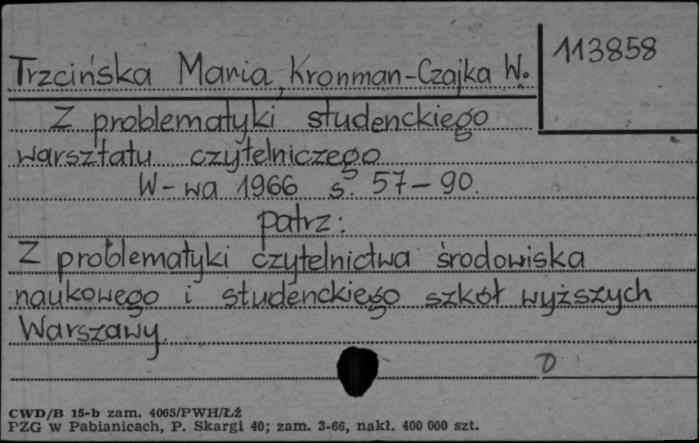 113858
Trzcińska Maria, Kronman-Czajka W.
Z problematyki studenckiego
warsztatu czytelniczego
W-wa 1966 s. 57-90.
patrz:
Z problematyki czytelnictwa środowiska
naukowego i studenckiego szkół wyższych
Warszawy.
CWD/B 15-b zam. 4065/PWH/ŁŹ
PZG w Pabianicach, P. Skargi 40; zam. 3-66, nakł. 400 000 szt.